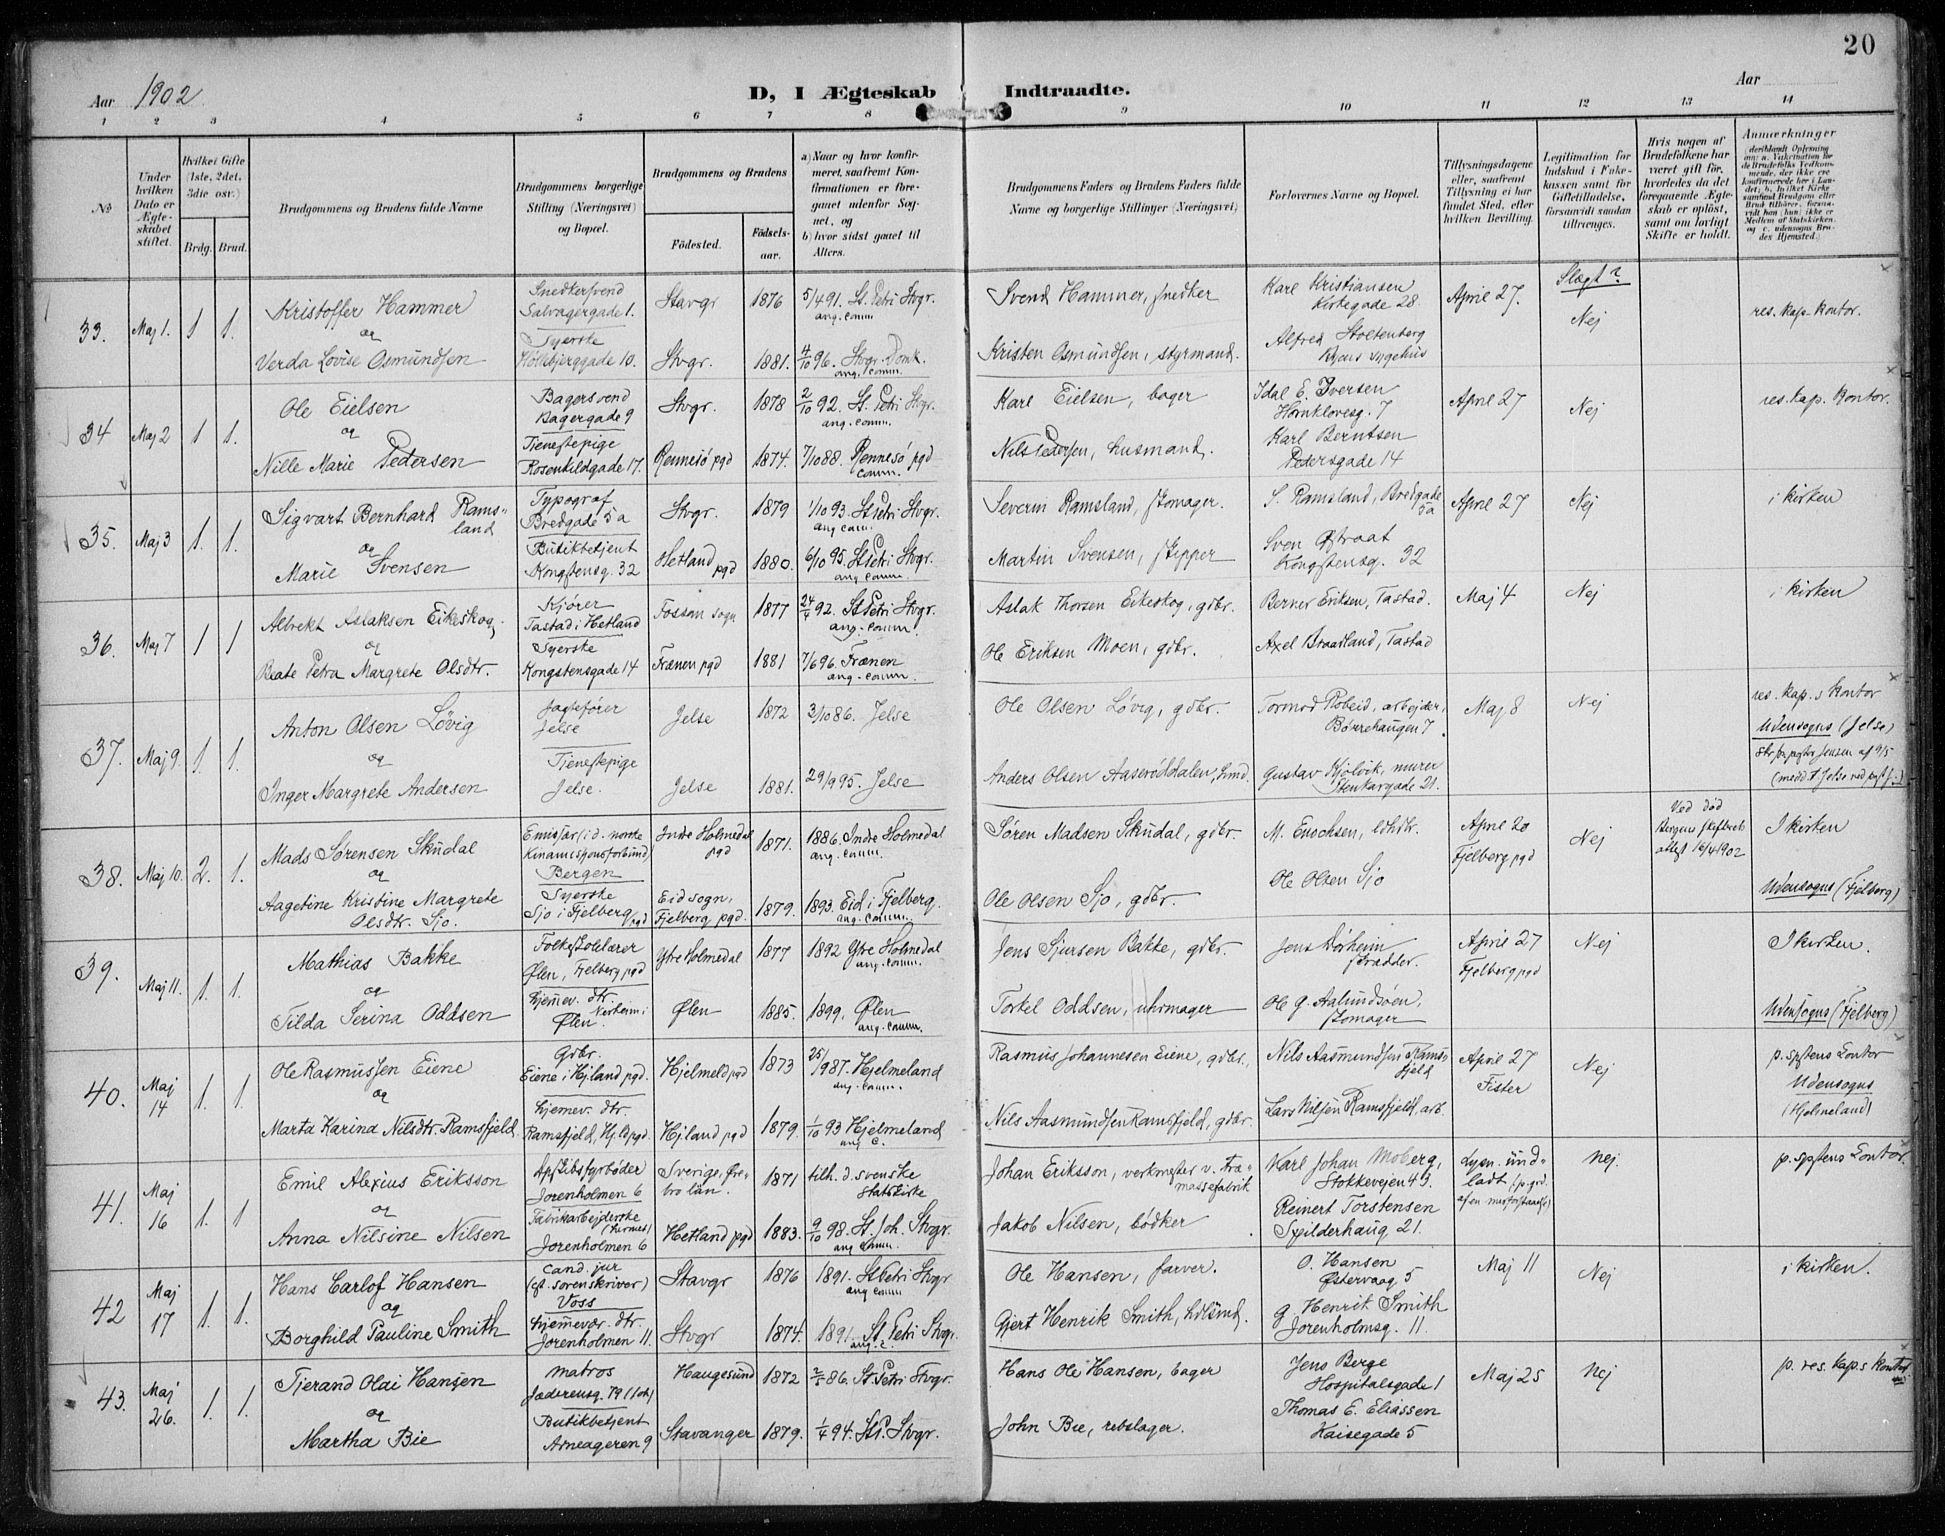 20
Aar 1902
D, I Ægteskab Indtraadte.
Aar
1 2 3 4 5 6 7 8 9 10 11 12 13 14
No
Under hvilken Dato er Ægteskabet stiftet.
Hvilket Gifte (1ste, 2det, 3die osv.)
Brdg. Brud.
Brudgommens og Brudens fulde Navne
Brudgommens borgerlige Stilling (Næringsvei) og Bopæl.
Brudgommens og Brudens
Födested.
Födselsaar.
a) Naar og hvor konfirmeret, saafremt Konfirmationen er foregaaet udenfor Sognet, og
b) hvor sidst gaaet til Alters.
Brudgommens Faders og Brudens Faders fulde Navne og borgerlige Stillinger (Næringsvei)
Forlovernes Navne og Bopæl.
Tillysningsdagene eller, saafremt Tillysning ei har fundet Sted, efter hvilken Bevilling.
Legitimation for Indskud i Enkekassen samt for Giftetilladelse, forsaavidt saadan tiltrænges.
Hvis nogen af Brudefolkene har været gift før, hvorledes da det foregaaende Ægteskab er oplöst, samt om lovligt Skifte er holdt.
Anmærkninger
33. Maj 1. 1 1.
Kristoffer Hammer
og
Verda Lovise Osmundsen
Snedkersvend
Salvagergade 1.
Syerske
Holebjerggade 10.
Stavgr 1876 5/4 91. St. Petri Stvgr.
ang. comm
Stvgr. 1881. 4/10 96. Stvgr. Domk.
ang. comm.
Svend Hammer, snedker
Kristen Osmundsen, styrmand.
Karl Kristiansen
Kirkegade 28.
Alfred Stoltenberg
Byens sygehus
April 27.
Slægt?
Nej
res. kap. kontor.
34 Maj 2 1 1.
Ole Eielsen
og
Nille Marie Pedersen
Bagersvend
Bagergade 9
Tjenestepige
Rosenkildgade 17.
Stvgr. 1878 2/10 92. St. Petri Stvgr.
ang. comm.
Rennesö pgd 1874. 7/10 88. Rennesö pgd
comm.
Karl Eielsen, bager
Nils Pedersen, husmand.
Idal E. Iversen
Hornklovesg. 7
Karl Berntsen
Pedersgade 14
April 27 Nej
res. kap. kontor.
35. Maj 3 1. 1.
Sigvart Bernhard Ramsland
og
Marie Svensen
Typograf
Bredgade 5a
Butikbetjent
Kongstensg. 32
Stvgr. 1879 1/10 93 St Petri Stvgr.
ang comm.
Hetland pgd 1880. 6/10 95. St Petri Stvgr.
ang comm.
Severin Ramsland, skomager.
Martin Svensen, skipper
S. Ramsland, Bredgade 5a
Sven Østraat
Kongstensg. 32
April 27 Nej
i kirken
36. Maj 7 1 1
Albrekt Aslaksen Eikeskog
og
Beate Petra Margrete Olsdtr.
Kjører
Tastad i Hetland
Syerske
Kongstensgade 14
Fossan sogn 1877 24/4 92. St Petri Stvgr.
ang. comm.
Frænen pgd 1881 7/6 96. Frænen
ang. comm.
Aslak Thorsen Eikeskog, gdbr.
Ole Eriksen Moen, gdbr.
Berner Eriksen, Tastad.
Axel Braadland, Tastad
Maj 4 Nej
i kirken
37. Maj 9. 1. 1.
Anton Olsen Løvig
og
Inger Margrete Andersen
Jagtefører
Jelse
Tjenestepige
Jelse.
Jelse 1872 3/10 86. Jelse
Jelse 1881. 29/9 95. Jelse
Ole Olsen Løvig, gdbr.
Anders Olsen Aaserøddalen, hmd.
Tormod Robeid, arbejder,
Børrehaugen 7.
Gustav Kjölvik, murer
Stenkargade 21.
Maj 8 Nej
res. kap.s kontor
Udensogns (Jelse)
38. Maj 10. 2. 1.
Mads Sørensen Skudal
og
Aagetine Kristine Margrete
Olsdtr. Sjo.
Emissær i d. norske
Kinamissionsforbund
Bergen
Syerske
Sjo i Fjelberg pgd
Indre Holmedal pgd 1871. 1886. Indre Holmedal
ang. comm.
Eid sogn, Fjelberg pgd. 1879. 1893. Eid i Fjelberg.
ang. comm.
Søren Madsen Skudal, gdbr.
Ole Olsen Sjo, gdbr.
M. Enochsen,
Ole Olsen Sjo
April 20
Fjelberg pgd
Nej
Ved død
Bergens skifteret
attest 16/4 1902
I kirken
Udensogns (Fjelberg)
39. Maj 11. 1. 1.
Mathias Bakke
og
Tilda Serina Oddsen
Folkeskolelærer
Ølen, Fjelberg pgd
hjemev. dtr.
Ølen.
Ytre Holmedal 1877 1892 Ytre Holmedal
ang. comm.
Ølen 1885. 1899. Ølen
ang. comm.
Jens Sjursen Bakke, gdbr.
Torkel Oddsen, uhrmager
Jens Dørheim
skrædder.
Ole G. Aalundsøen,
skomager
April 27
Fjelberg pgd
Nej
I kirken.
Udensogns (Fjelberg)
40. Maj 14 1. 1.
Ole Rasmussen Eiene
og
Marta Karina Nilsdtr. Ramsfjeld
Gdbr.
Eiene i Hjland pgd.
hjemev. dtr.
Ramsfjeld, Hjld pgd.
Hjelmeld pgd 1873 25/9 87. Hjelmeland
ang. comm.
Hjland pgd 1879. 1/10 93 Hjelmeland
ang c.
Rasmus Johannesen Eiene, gdbr.
Nils Aasmundsen Ramsfjeld, gdbr.
Nils Aasmundsen Ramsfjeld
Lars Nilsen Ramsfjeld, arb.
April 27
Fister
Nej
p. spstens kontor
Udensogns
(Hjelmeland)
41. Maj 16 1. 1
Emil Alexius Eriksson
og
Anna Nilsine Nilsen
Dpskibsfyrbøder
Jorenholmen 6
Fabrikarbejderske
(hermet.)
Jorenholmen 6
Sverige, Örebro län. 1871 tilh. d. svenske
Statskirke
Hetland pgd 1883. 9/10 98. St. Joh. Stvgr.
ang comm.
Johan Eriksson, verkmester v. træmassefabrik
Jakob Nilsen, bødker
Karl Johan Moberg,
Stokkevejen 49.
Reinert Torstensen
Spilderhaug 21.
Lysn. undladt
Nej.
p. spstens kontor.
42 Maj 17 1. 1.
Hans Carlof Hansen
og
Borghild Pauline Smith
cand. jur
(cf. sorenskriver)
Voss
hjemevær. dtr.
Jorenholmen 11.
Stavgr 1876 1891. St Petri Stvgr.
ang comm
Stvgr 1874. 1891. St. Petri Stvgr.
ang. c.
Ole Hansen, farver.
Gjert Henrik Smith, hdlsmd.
O. Hansen
Østervaag 5
G. Henrik Smith
Jorenholmsg. 11.
Maj 11 Nej
i kirken.
43. Maj 26. 1. 1.
Tjerand Olai Hansen
og
Martha Bie
Matros
Jæderensg. 79 (Joh)
Butikbetjent
Arneageren 9
Haugesund 1872 2/5 86. St Petri Stvgr.
Stavanger 1879. 1/4 94. St P. Stvgr.
Hans Ole Hansen, bager
John Bie, rebslager.
Jens Berge
Hospitalsgade 1
Thomas E. Eliassen
Kaisegade 5
Maj 25 Nej
p. res. kap.s kontor